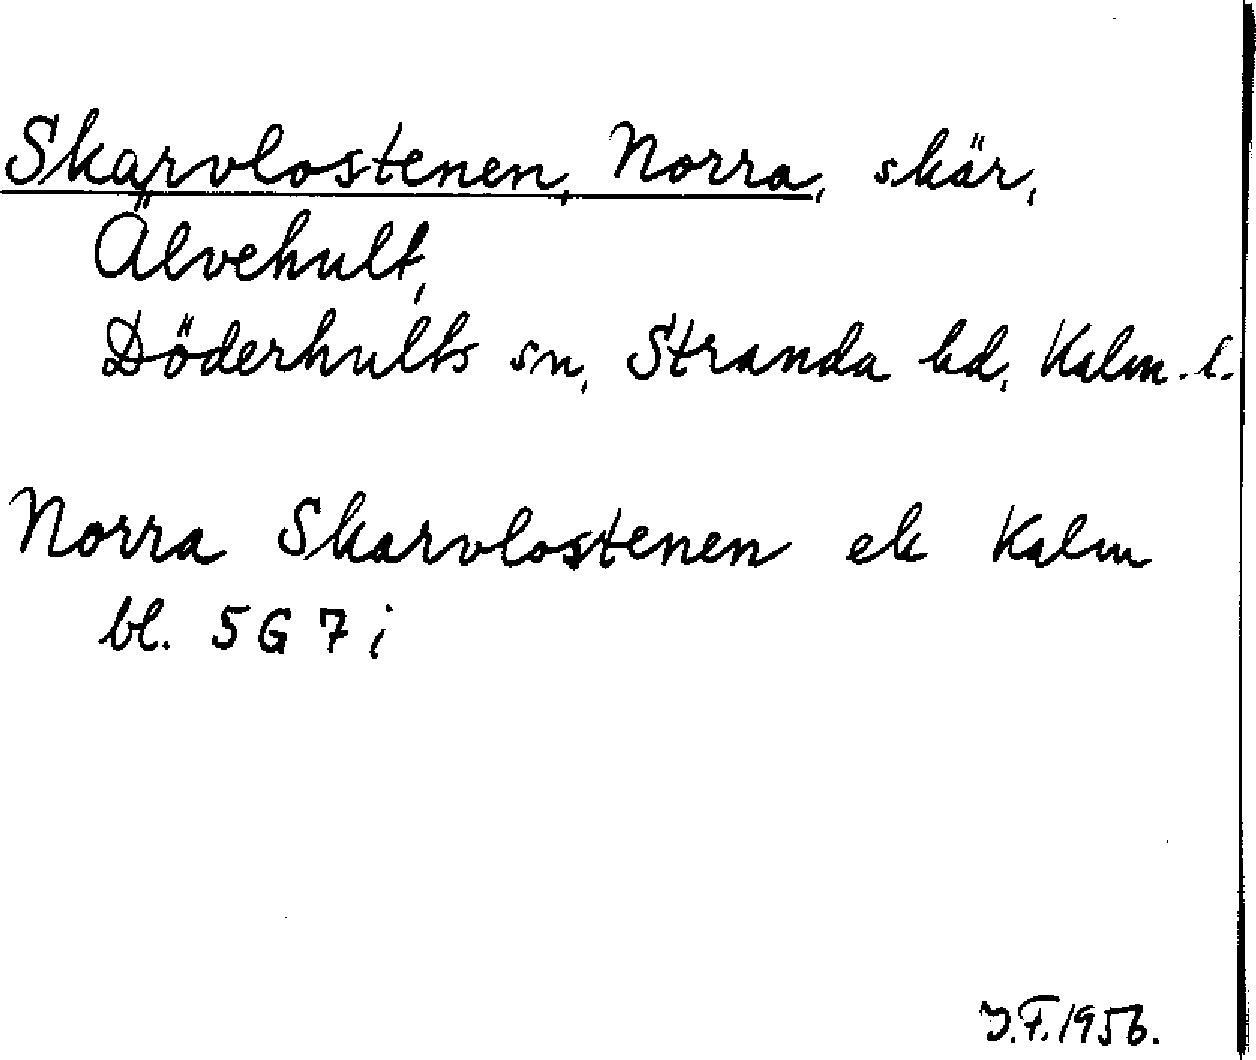 Skarvlostenen, Norra, skär,
Älvehult,
Döderhults sn, Stranda hd, Kalm. l.
Norra Skarvlostenen ek Kalm
bl. 5G 7 i
J.F. 1956.